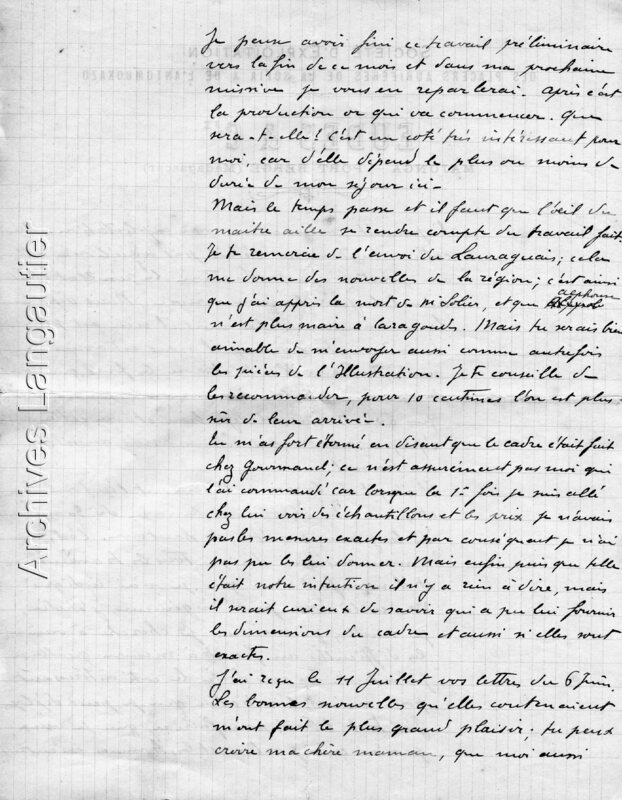 Je pense avoir fini ce travail préliminaire
vers la fin de ce mois et dans ma prochaine
missive je vous en reparlerai. Après c'est
la production or qui va commencer. Que
sera-t-elle! C'est un coté très intéressant pour
moi, car d'elle dépend le plus ou moins de
durée de mon séjour ici-
Mais le temps passe et il faut que l'oeil du
maitre aille se rendre compte du travail fait.
Je te remercie de l'envoi du Lauraguais; cela
me donne des nouvelles de la région; c'est ainsi
que j'ai appris la mort de Midolier, et que Alphonse
n'est plus maire à Caragoude. Mais tu serais bien
aimable de m'envoyer aussi comme autrefois
les pièces de l'Illustration. Je te conseille de
les recommander, pour 10 centimes l'on est plus
sûr de leur arrivée.
Tu m'as fort étonné en disant que le cadre était fait
chez Gourmand; ce n'est assurément pas moi qui
l'ai commandé car lorsque la 1re fois je suis allé
chez lui voir des échantillons et les prix je n'avais
pas les mesures exactes et par conséquent je n'ai
pas pu les lui donner. Mais enfin puis que telle
était notre intention il n'y a rien à dire, mais
il serait curieux de savoir qui a pu lui fournir
les dimensions du cadre et aussi si elles sont
exactes.
J'ai reçu le 11 Juillet vos lettres du 6 Juin.
Les bonnes nouvelles qu'elles contenaient
m'ont fait le plus grand plaisir; tu peux
croire ma chère maman, que moi aussi
Archives Langautier